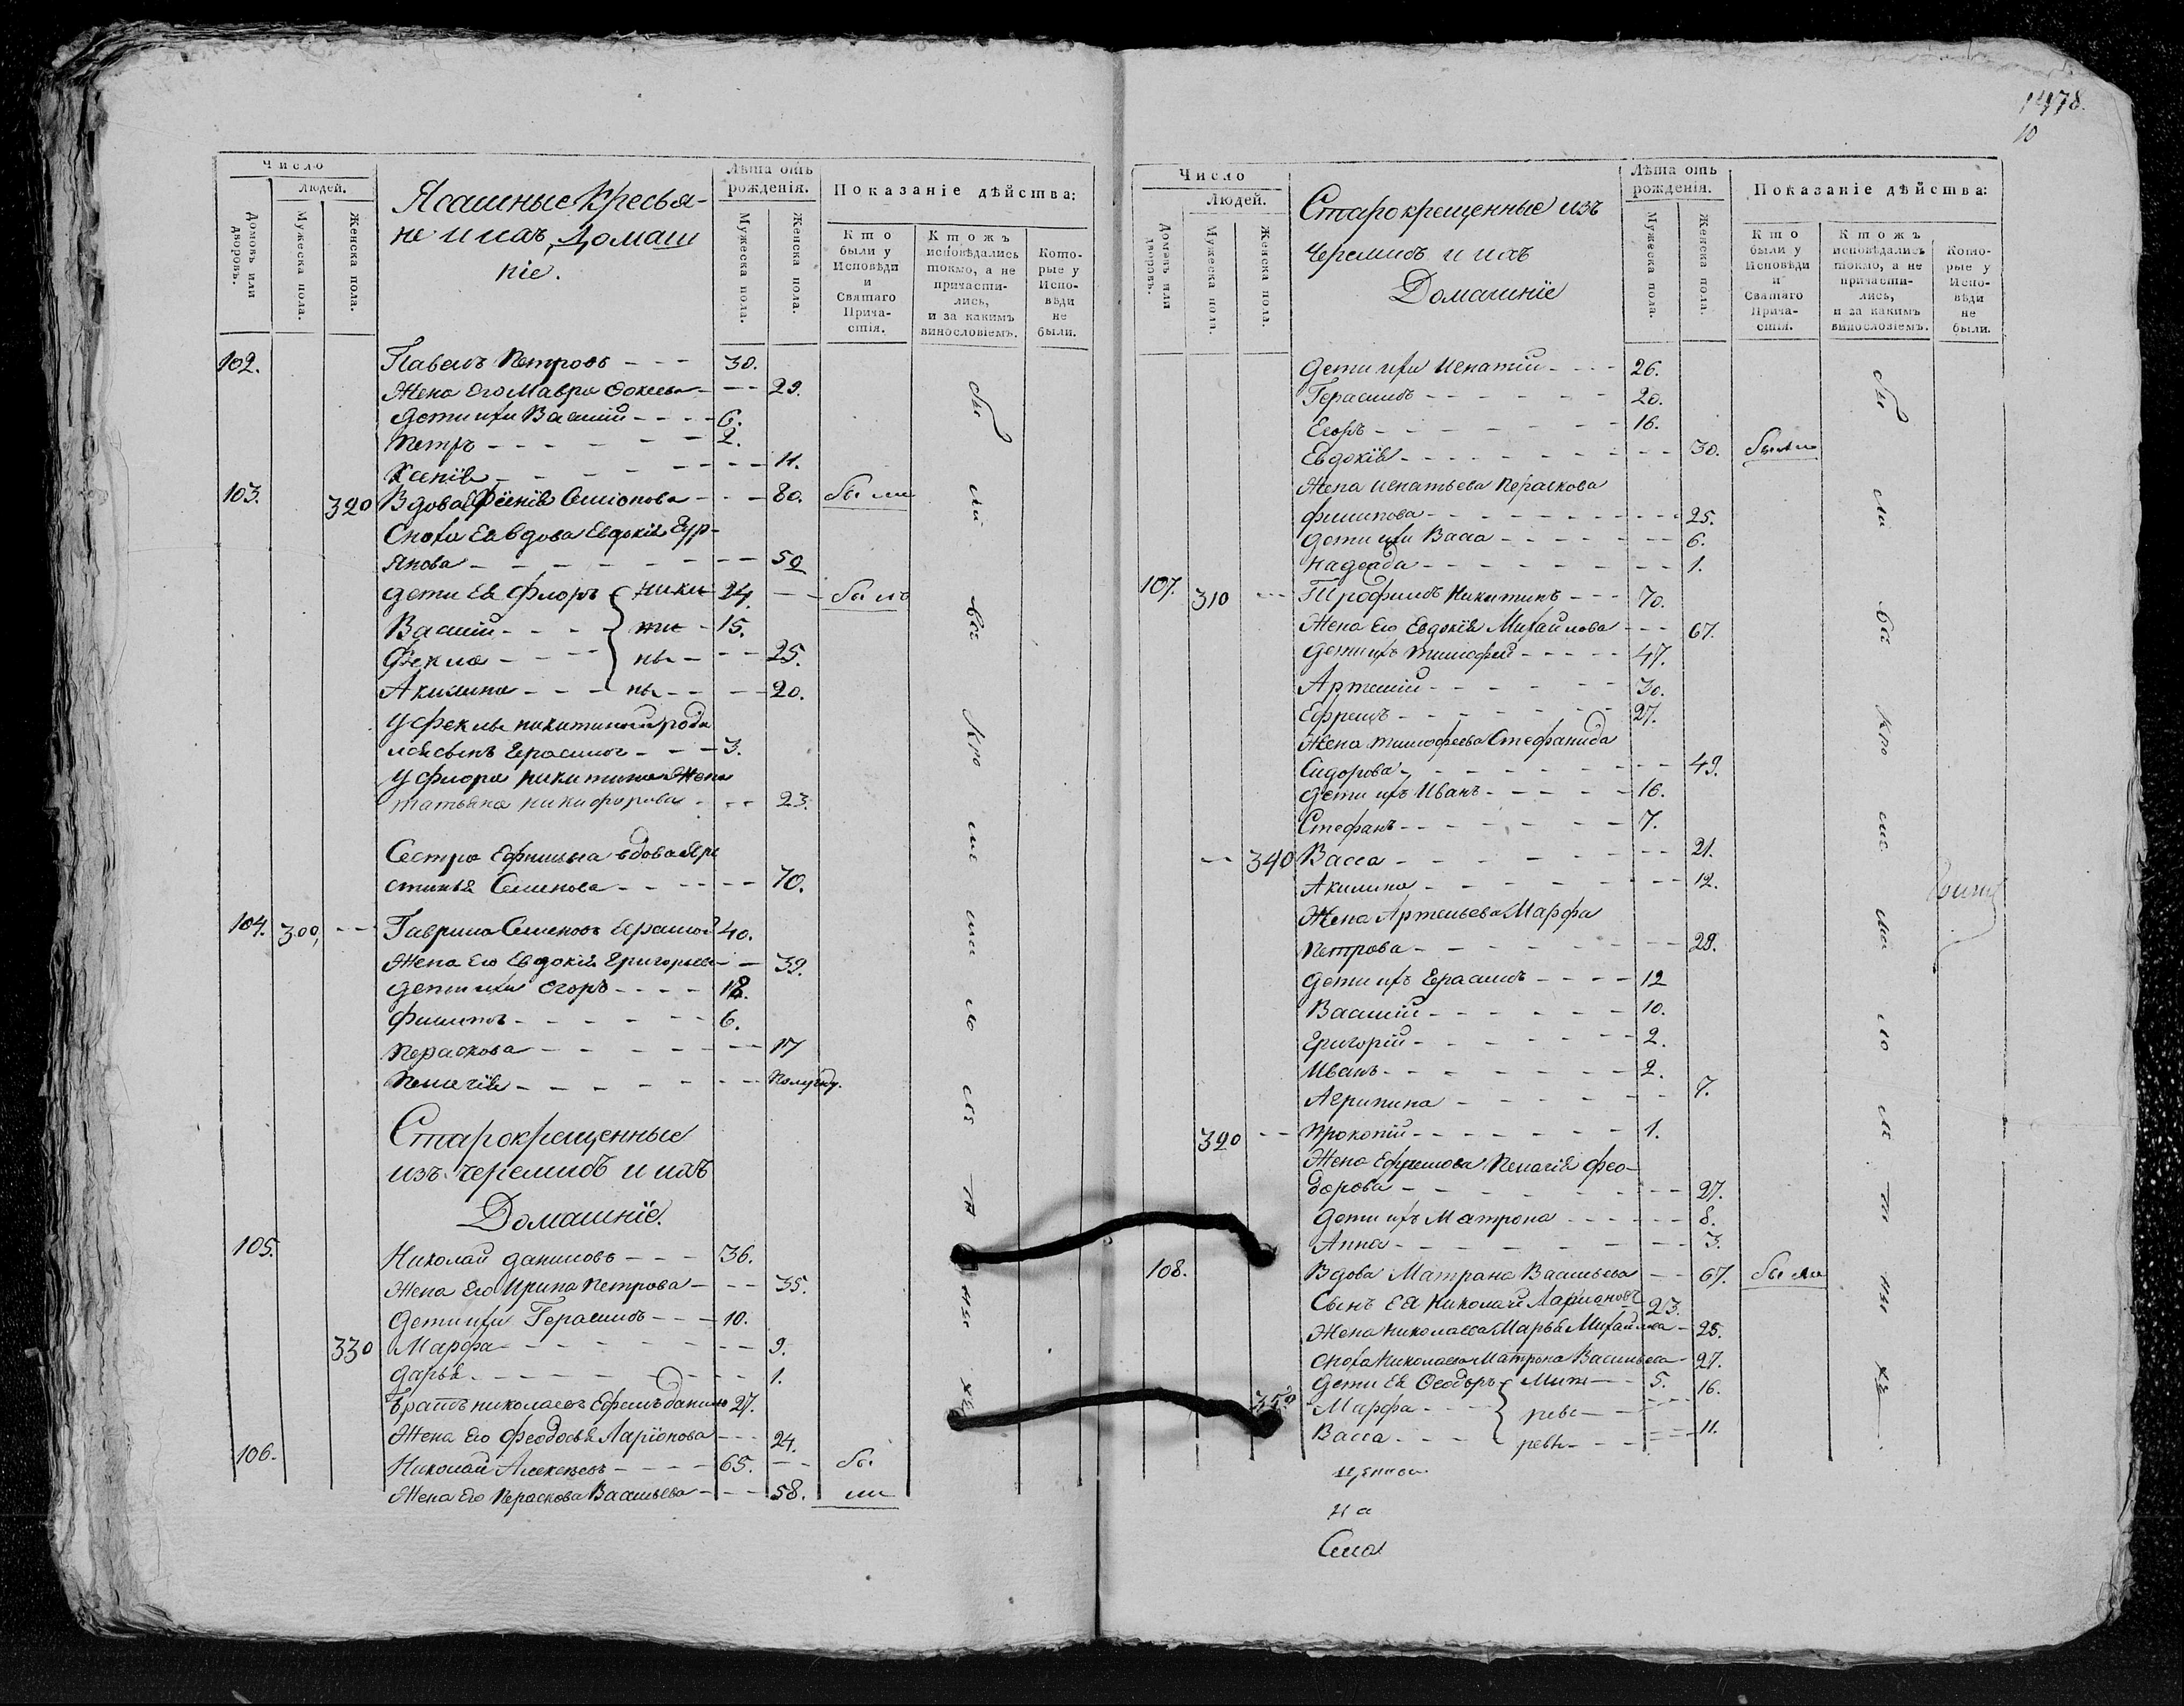 1478.
10
Число
Людей.
Домовъ или дворовъ.
Мужеска пола.
Женска пола.
Ясашные Кресья-
не и ихъ Домаш
ніе.
Лѣта отъ рожденія.
Мужеска пола.
Женска пола.
Показаніе дѣйства:
Кто были у Исповѣди и Святаго Прича-стія.
Ктожъ исповѣдались токмо, а не причасти-лись, и за какимъ винословіемъ.
Кото-рые у Испо-вѣди не были.
102. Павелъ Петровъ - - - 30.
Жена Его Мавра - - - 29.
Дети ихъ Василий - - - - 6.
Петръ - - - - - - - 2.
Ксенія - - - - - - - - 11.
103. 320 Вдова Семіонова - - - 80. были
Сноха Ея вдова Евдокія Еур-
янова - - - - - - - - - 50
дети Ея Флоръ ники - 24. - - былъ
Василий - - - - ти - 15.
Фекла - - - - ны - - - 25.
Акилина - - - - ны - - - - 20.
У Феклы никитиной роди
лся сынъ Герасимъ - - - 3.
У Флора никитина Жена
татьяна никифорова - - - 23.
Сестра вдова Хри
стинья Семенова - - - - - - 70.
104. 300, - - Гаврила Семеновъ 40.
Жена Его Евдокія Григорьева - - 39.
дети ихъ Егоръ - - - - 18.
Филипъ - - - - - - - 6.
Пераскова - - - - - - - - 17
Пелагія - - - - - - - - полугоду.
Старокрещенные
изъ черемисъ и ихъ
Домашніе.
105. Николай даниловъ - - - 36.
Жена Его Ирина Петрова - - - 35.
Дети ихъ Герасимъ - - - 10.
330 Марфа - - - - - - - - 9.
Дарья - - - - - - - - 1.
Братъ николаевъ Ефремъ данило 27.
Жена Его Феодосья Ларіонова - - - 24.
106. Николай Алексѣевъ - - - - 65. - - бы
Жена Его Пераскова Васильева - - - 58. ли
бы
ли
всѣ
кро
мѣ
ма
ло
лѣ
т
ны
хъ
Число
Людей.
Домовъ или дворовъ.
Мужеска пола.
Женска пола.
Старокрещенные изъ
черемисъ и ихъ
Домашніе
Лѣта отъ рожденія.
Мужеска пола.
Женска пола.
Показаніе дѣйства:
Кто были у Исповѣди и Святаго Прича-стія.
Ктожъ исповѣдались токмо, а не причасти-лись, и за какимъ винословіемъ.
Кото-рые у Испо-вѣди не были.
Дети ихъ Игнатій - - - - 26.
Герасимъ - - - - - - 20.
Егоръ - - - - - - - 16.
Евдокія - - - - - - - - 30. были
Жена Игнатьева Пераскова
филипова - - - - - - - - - 25.
Дети ихъ Васса - - - - - - - 6.
Надежда - - - - - - - - 1.
107. 310 - - Трофимъ Никитинъ - - - 70.
Жена Его Евдокія Михайлова - - - 67.
Дети ихъ тимофей - - - - - 47.
Артемій - - - - - - - 30.
Ефремъ - - - - - - - 27.
Жена тимофеева Стефанида
Сидорова - - - - - - - - 49.
Дети ихъ Иванъ - - - - - 16.
Стефанъ - - - - - - - 7.
- - 340 Васса - - - - - - - - 21.
Акилина - - - - - - - - 12.
Жена Артемьева Марфа
Петрова - - - - - - - - 29.
Дети ихъ Герасимъ - - - - 12
Василий - - - - - - - 10.
Григорій - - - - - - - 2.
Иванъ - - - - - - - 2.
Агрипина - - - - - - - 7.
320 - - Прокопій - - - - - - - 1.
Жена Ефремова Пелагія Фео-
дорова - - - - - - - - - 27.
Дети ихъ Матрона - - - - - - 8.
Анна - - - - - - - - 3.
108. Вдова Матрона Васильева - - 67. была
Сынъ Ея николай Ларионовъ 23.
Жена николаева Марья Михайлова - 25.
Сноха николаева Матрона Васильева - 27.
350 Дети Ея Феодоръ Мит - - - 5. 16.
Марфа - - - - ревы - - -
Васса - - - - ревы - - - - 11.
бы
ли
всѣ
кро
мѣ
ма
ло
лѣ
т
ны
хъ
на